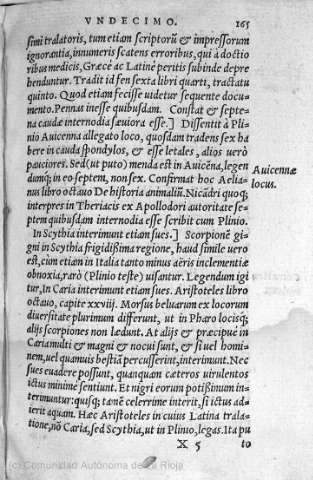 VNDECIMO. 165
simi tralatoris, tum etiam scriptorũ & impressorum
ignorantia, innumeris scatens erroribus, qui à doctio
ribus medicis, Græcè ac Latinè peritis subinde depre
henduntur. Tradit id fen sexta libri quarti, tractatu
quinto. Quod etiam fecisse uidetur sequente docu-
mento. Pennas inesse quibusdam. Constat & septe-
na caudæ internodia sæuiora esse.] Dissentit à Pli-
nio Auicenna allegato loco, quosdam tradens sex ha
bere in cauda spondylos, & esse letales, alios uerò
pauciores. Sed (ut puto) menda est in Auicẽna, legen
dumq; in eo septem, non sex. Confirmat hoc Aelia-
nus libro octauo De historia animaliũ. Nicãdri quoq;
interpres in Theriacis ex Apollodori autoritate se-
ptem quibusdam internodia esse scribit cum Plinio.
Auicennæ
locus.
In Scythia interimunt etiam sues.] Scorpionẽ gi-
gni in Scythia frigidißima regione, haud simile uero
est, cùm etiam in Italia tanto minus aëris inclementiæ
obnoxia, rarò (Plinio teste) uisantur. Legendum igi
tur, In Caria interimunt etiam sues. Aristoteles libro
octauo, capite xxviij. Morsus beluarum ex locorum
diuersitate plurimum differunt, ut in Pharo locisq;
alijs scorpiones non lædunt. At alijs & præcipuè in
Caria multi & magni & nocui sunt, & si uel homi-
nem, uel quamuis bestiã percusserint, interimunt. Nec
sues euadere possunt, quanquam cæteros uirulentos
ictus minimè sentiunt. Et nigri eorum potißimum in-
terimuntur: quisq; tamẽ celerrimè interit, si ictus ad-
ierit aquam. Hæc Aristoteles in cuius Latina trala-
tione, nõ Caria, sed Scythia, ut in Plinio, legas. Ita pu
X 5 to
(c) Comunidad Autónoma de La Rioja